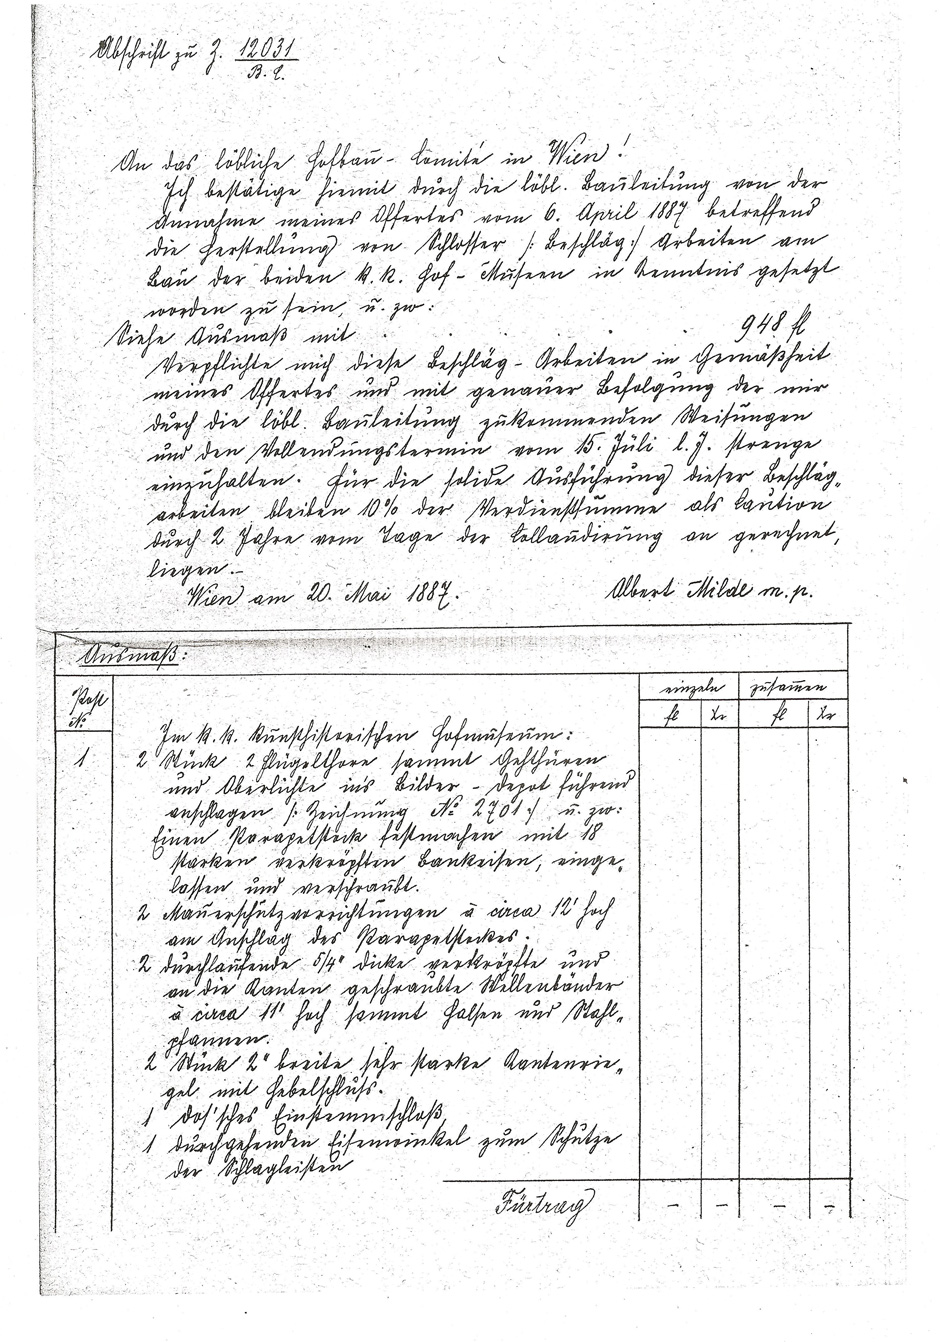 Abschrift zu Z. 12031
B. C.
An das löbliche Hofbau-Comité in Wien!
Ich bestätige hiemit durch die löbl. Bauleitung von der
Annahme meines Offertes vom 6. April 1887 betreffend
die Herstellung von Schlosser /: Beschläg :/ Arbeiten am
Bau der beiden k. k. Hof-Museen in Kenntnis gesetzt
worden zu sein, u. zw:
Siehe Ausmaß mit . . . . . 948 fl
Verpflichte mich diese Beschläg-Arbeiten in Gemäßheit
meines Offertes und mit genauer Befolgung der mir
durch die löbl. Bauleitung zukommenden Weisungen
und den Vollendungstermin vom 15. Juli l. J. strenge
einzuhalten. Für die solide Ausführung dieser Beschläg„
arbeiten bleiben 10% der Verdienstsumme als Caution
durch 2 Jahre vom Tage der Collaudirung an gerechnet,
liegen.-
Wien am 20. Mai 1887. Albert Milde m. p.
Ausmaß:
Post No einzeln zusammen
fl kr fl kr
Im k. k. kunsthistorischen Hofmuseum:
1 2 Stück 2 flügelthore sammt Gehthüren
und Oberlichte in's Bilder-Depot führend
anschlagen /: Zeichnung No 2701 :/ u. zw:
Einen Parapetstock festmachen mit 18
starken verkröpften Bankeisen, einge„
lassen und verschraubt.
2 Mauerschutzvorrichtungen à circa 12' hoch
am Anschlag des Parapetstockes.
2 durchlaufende 5/4" dicke verkröpfte und
an die Kanten geschraubte Wellenbänder
à circa 11' hoch sammt Halsen und Stahl„
pfannen.
2 Stück 2" breite sehr starke Kantenrie„
gel mit Hebelschluss.
1 dos'sches Einstemmschloß
1 durchgehenden Eisenwinkel zum Schutze
der Schlagleisten
Fürtrag - - - -